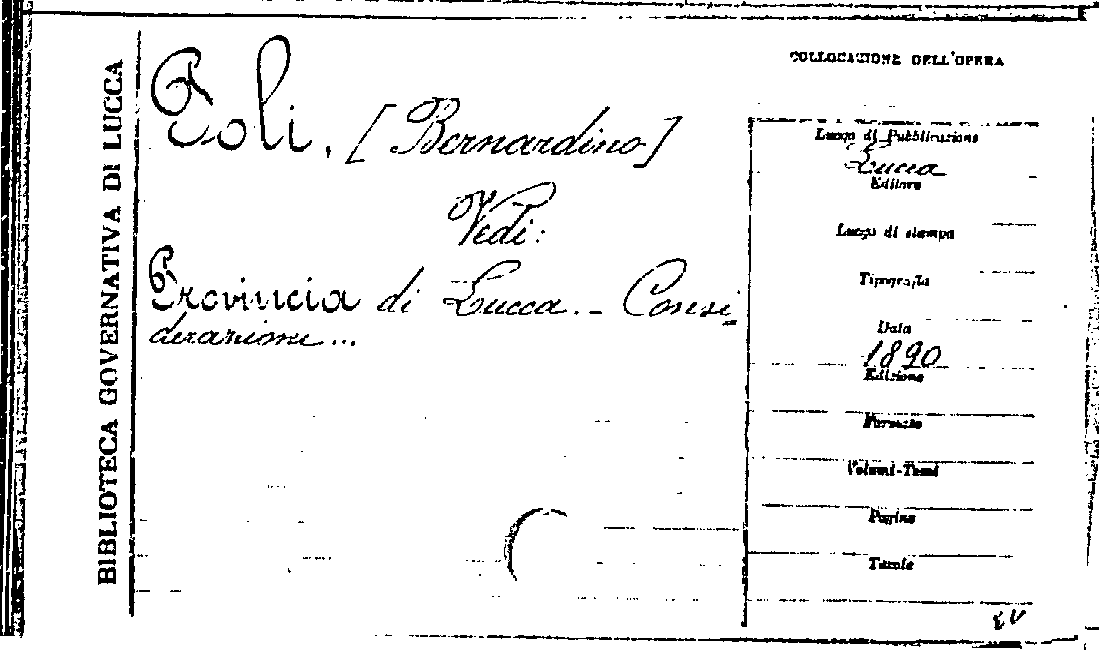 BIBLIOTECA GOVERNATIVA DI LUCCA
Poli, [Bernardino]
Vedi:
Provincia di Lucca. - Consi-
derazioni...
COLLOCAZIONE DELL'OPERA
Luogo di Pubblicazione
Lucca
Editore
Luogo di stampa
Tipografia
Data
1890
Edizione
Formato
Volumi-Tomi
Pagine
Tavole